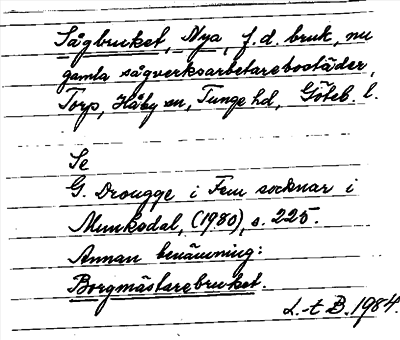 Sågbruket, Nya, f.d. bruk, nu
gamla sågverksarbetarebostäder,
Torp, Håby sn, Tunge hd, Göteb. l.
Se
G. Drougge i Fem socknar i
Munkedal, (1980), s. 225.
Annan benämning:
Borgmästarebruket.
L.-t B. 1984.